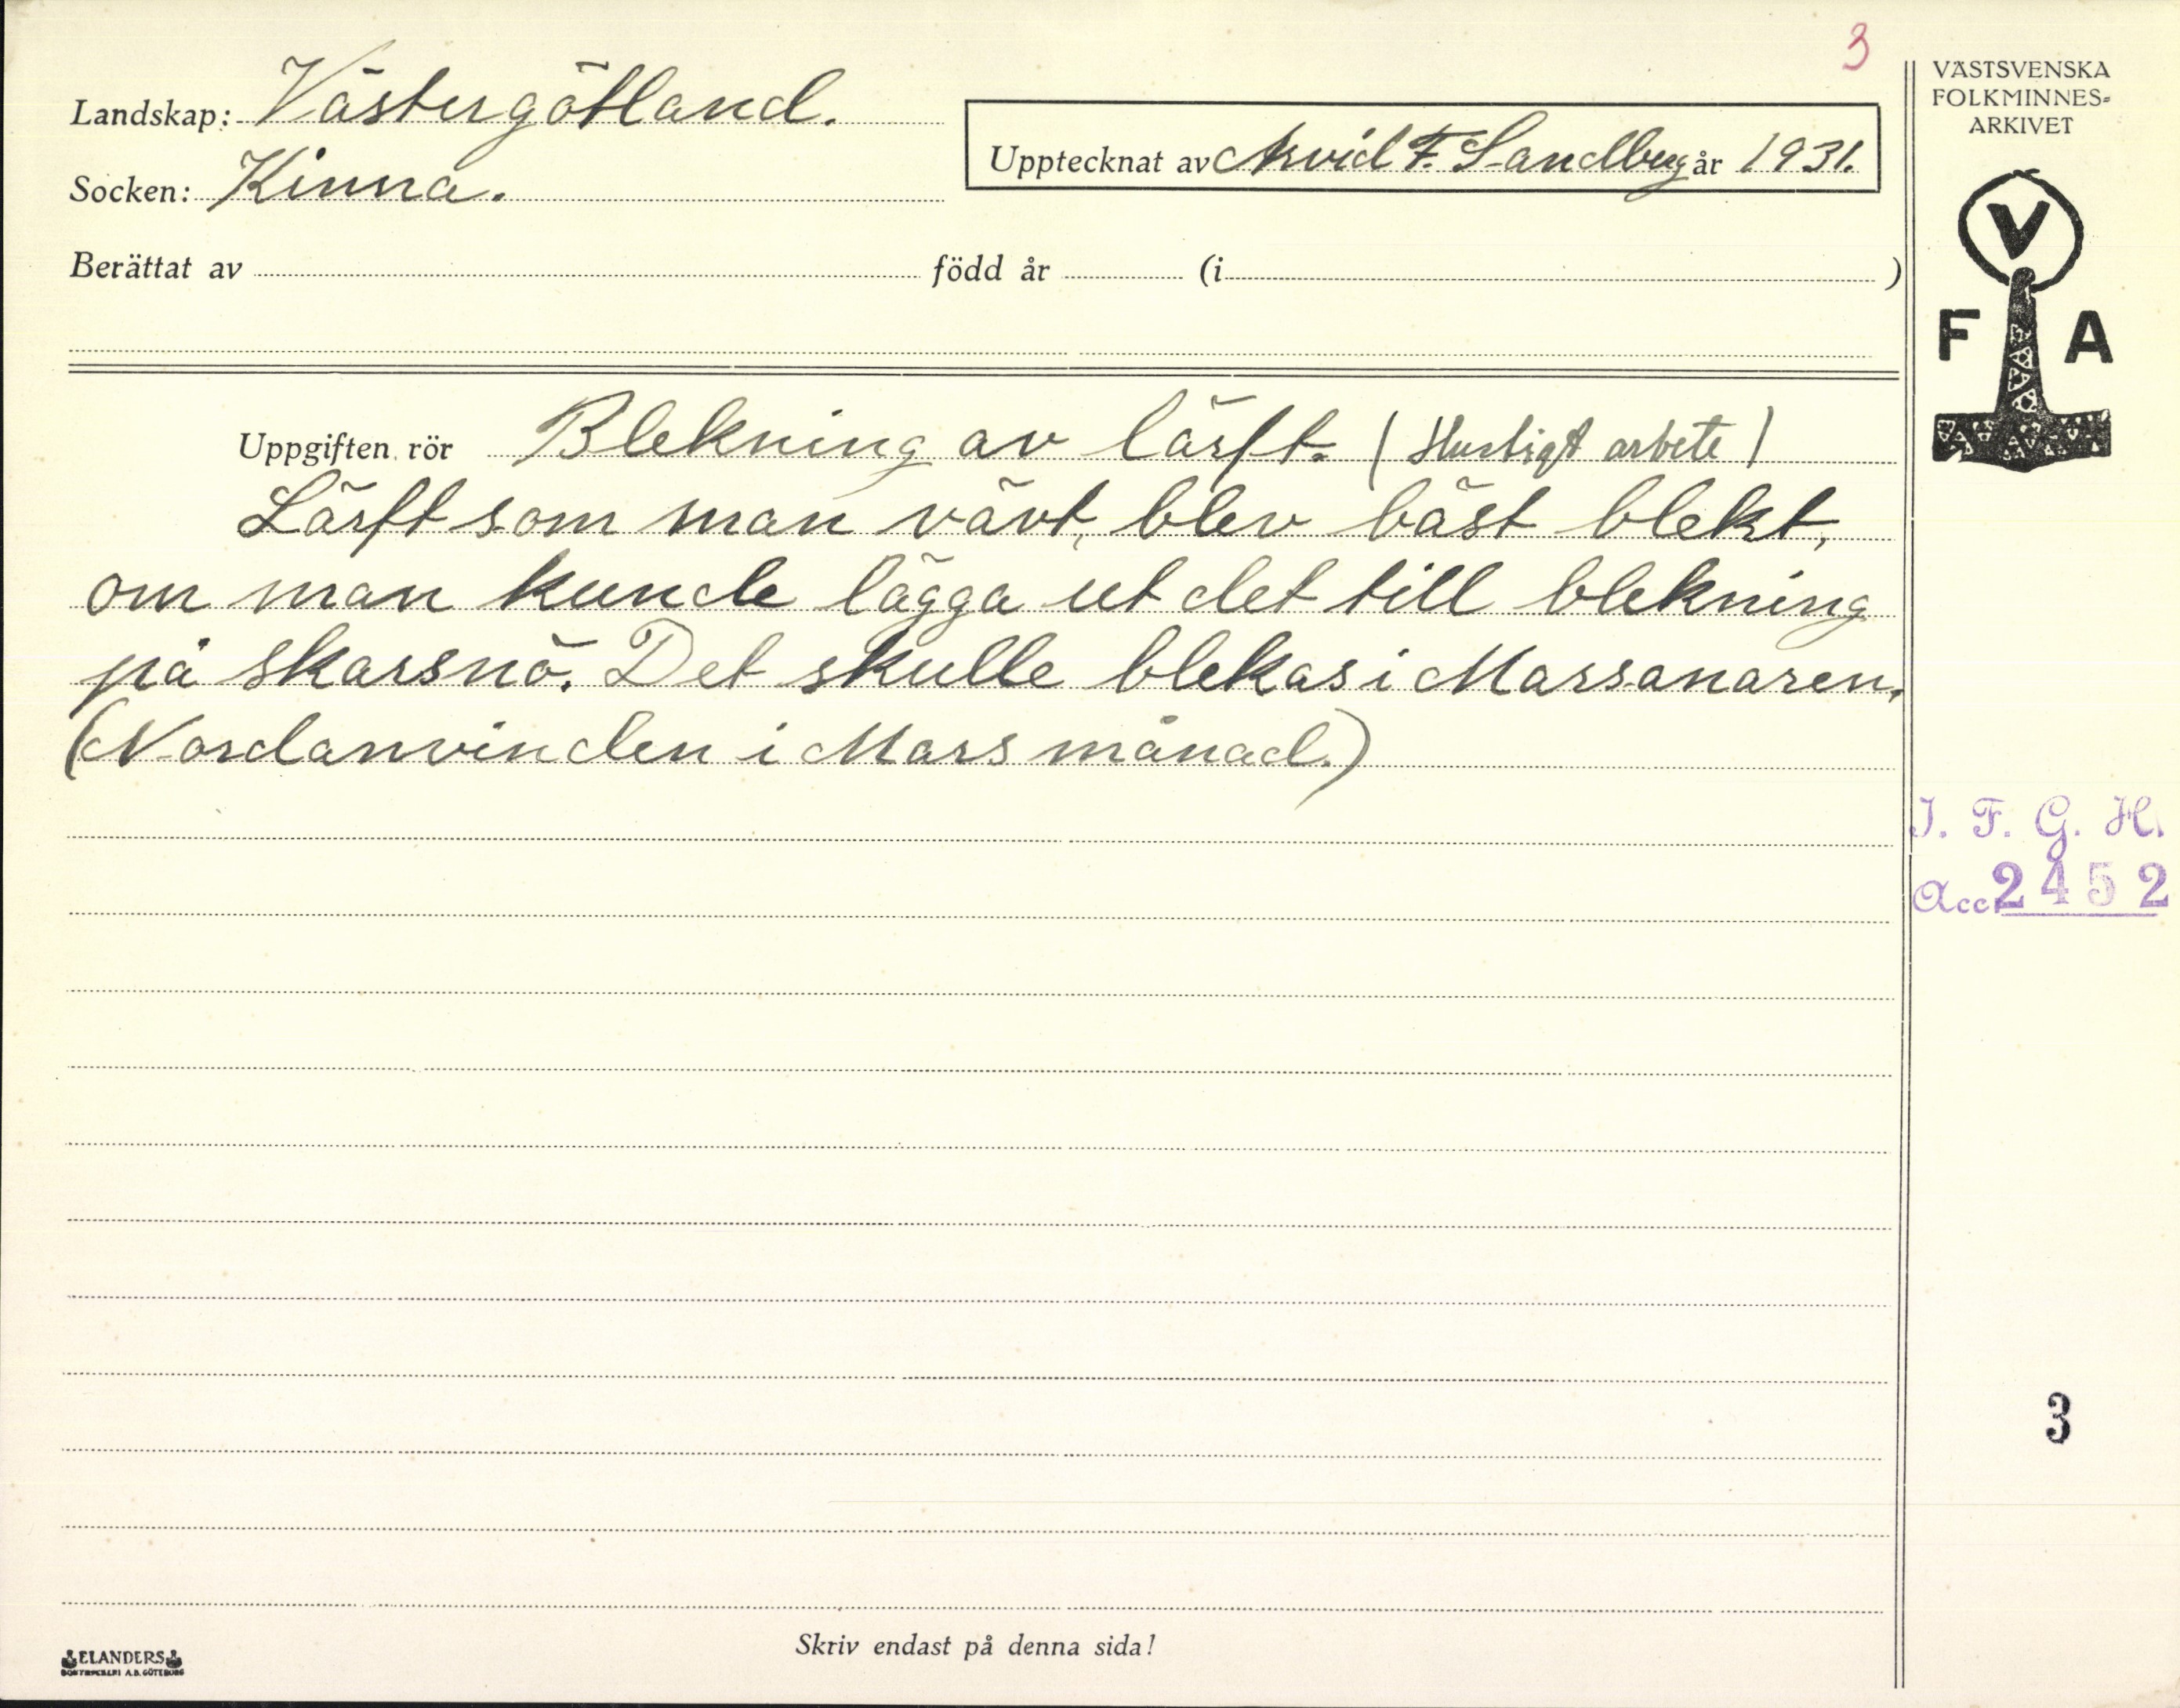 3
Landskap: Västergötland.
Socken: Kinna.
Upptecknat av Arvid F. Sandberg år 1931.
Berättat av född år (i )
Uppgiften rör Blekning av lärft. (Husligt arbete)
Lärft som man vävt, blev bäst blekt,
om man kunde lägga ut det till blekning
på skarsnö. Det skulle blekas i Marsanaren.
(Nordanvinden i Mars månad.)
Skriv endast på denna sida!
ELANDERS
BOKTRYCKERI A.B. GÖTEBORG
VÄSTSVENSKA
FOLKMINNES-
ARKIVET
V
F A
I. F. G. H.
Acc. 2452
3